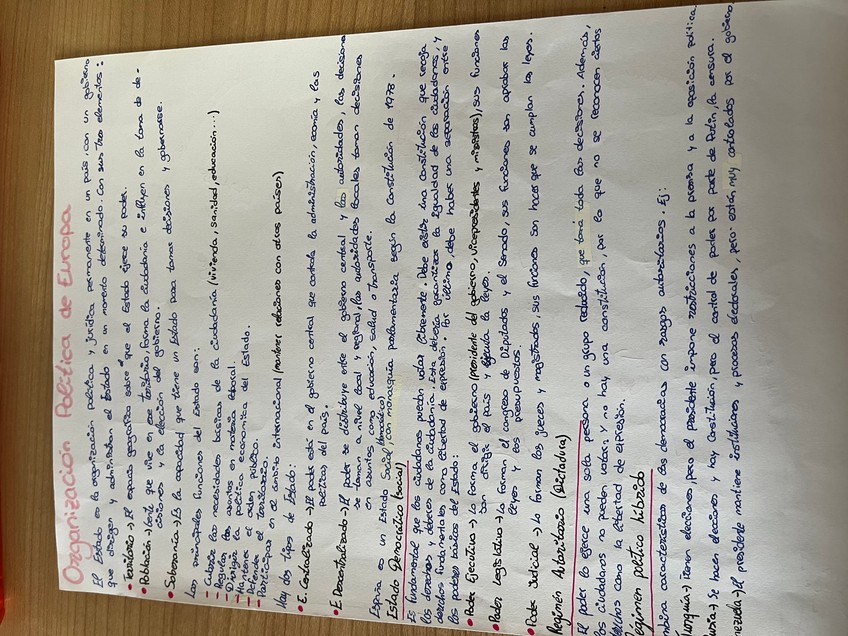 Organización Política de Europa
El Estado es la organización política y jurídica permanente en un país, con un gobierno
que dirigen y administran el Estado en un momento determinado. Con sus tres elementos:
• Territorio → El espacio geográfico sobre el que el Estado ejerce su poder.
• Población → Gente que vive en ese territorio, forma la ciudadanía e influyen en la toma de de-
cisiones y la elección del gobierno.
• Soberanía → Es la capacidad que tiene un Estado para tomar decisiones y gobernarse.
Las principales funciones del Estado son:
– Cubrir las necesidades básicas de la ciudadanía (vivienda, sanidad, educación...)
– Regular los asuntos en materia laboral.
– Dirigir la política económica del Estado.
– Mantener el orden público.
– Defender el territorio.
– Participar en el ámbito internacional (mantener relaciones con otros países)
Hay dos tipos de Estado:
• E. Centralizado → El poder está en el gobierno central que controla la administración, economía y las
políticas del país.
• E. Descentralizado → El poder se distribuye entre el gobierno central y las autoridades, las decisiones
se toman a nivel local y regional, las autoridades locales toman decisiones
en asuntos como educación, salud o transporte.
España es un Estado Social, con monarquía parlamentaria según la constitución de 1978.
(democrático)
Estado Democrático (social)
Es fundamental que los ciudadanos puedan votar libremente. Debe existir una constitución que recoja
los derechos y deberes de la ciudadanía. Esta debería garantizar la igualdad de los ciudadanos, y
derechos fundamentales como libertad de expresión. Por último, debe haber una separación entre
los poderes básicos del Estado:
• Poder Ejecutivo → Lo forma el gobierno (presidente del gobierno, vicepresidentes y ministros), sus funciones
son dirigir el país y ejecuta la leyes.
• Poder Legislativo → Lo forman el congreso de Diputados y el Senado, sus funciones son aprobar las
leyes y los presupuestos.
• Poder Judicial → Lo forman los jueces y magistrados, sus funciones son hacer que se cumplan las leyes.
Regimén Autoritario (Dictadura)
El poder lo ejerce una sola persona o un grupo reducido, que toma toda las decisiones. Además,
los ciudadanos no pueden votar y no hay una constitución, por lo que no se reconocen ciertos
derechos como la libertad de expresión.
Regimen político híbrido
mbina características de las democracias con rasgos autoritarios. Ej:
ungría → Tienen elecciones, pero el presidente impone restricciones a la prensa y a la oposición política
usia → Se hacen elecciones y hay Constitución, pero el control de poder por parte de Putin, la censura.
ezuela → El presidente mantiene instituciones y procesos electorales, pero están muy controlados por el gobierno